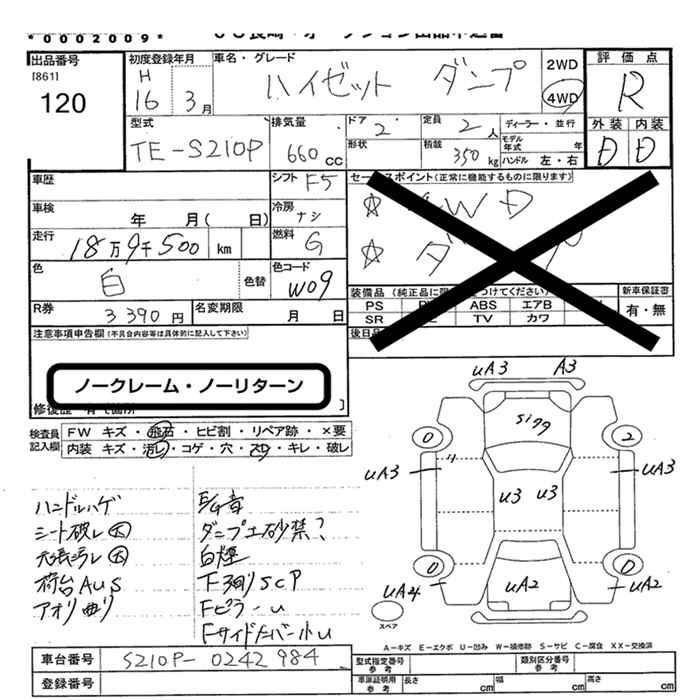 *0002009*
出品番号
[861]
120
初度登録年月
H
16 3月
車名・グレード
ハイゼット ダンプ
2WD
4WD
評価点
R
型式
TE-S210P
排気量
660 cc
ドア
2
形状
定員
2人
積載
350 kg
ディーラー・並行
モデル年式 年
ハンドル 左・右
外装 内装
D D
車歴
シフト F5
車検
年 月( 日)
冷房
ナシ
走行
18万9千500 km
燃料
G
色
白
色替
色コード
W09
R券
3390円
名変期限
月 日
セールスポイント(正常に機能するものに限ります)
☆ 4WD
☆ ダンプ
装備品
ABS エアB
SR TV カワ
新車保証書
有・無
注意事項申告欄(不具合内容等は具体的に記入して下さい)
ノークレーム・ノーリターン
検査員記入欄
FW キズ・飛石・ヒビ割・リペア跡・×要
内装 キズ・汚レ・コゲ・穴・スレ・キレ・破レ
ハンドルハゲ
シート破レ大
天張汚レ大
荷台AUS
アオリ曲り
異音
ダンプ土砂禁?
白煙
下廻りSCP
Fピラーu
uA3 A3
uA3 uA3
u3 u3
uA2
uA4 uA2
スペア
A-キズ E-エクボ U-凹み W-補修跡 S-サビ C-腐食 XX-交換済
車台番号 S210P-0242984
登録番号
型式指定番号
参考
類別区分番号
参考
車庫証明用
参考
長さ cm 幅 cm 高さ cm